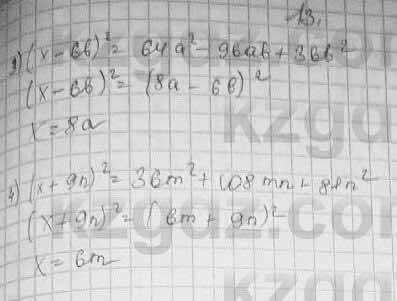 13.
3) (x - 6b)² = 64a² - 96ab + 36b²
(x - 6b)² = (8a - 6b)²
x = 8a
4) (x + 9n)² = 36m² + 108mn + 81n²
(x + 9n)² = (6m + 9n)²
x = 6m